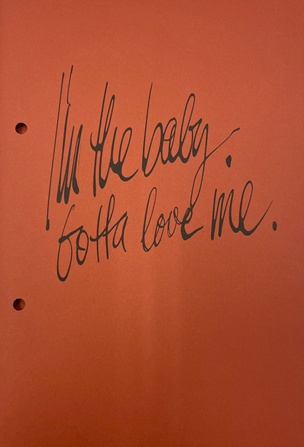 I'm the baby.
Gotta love me.